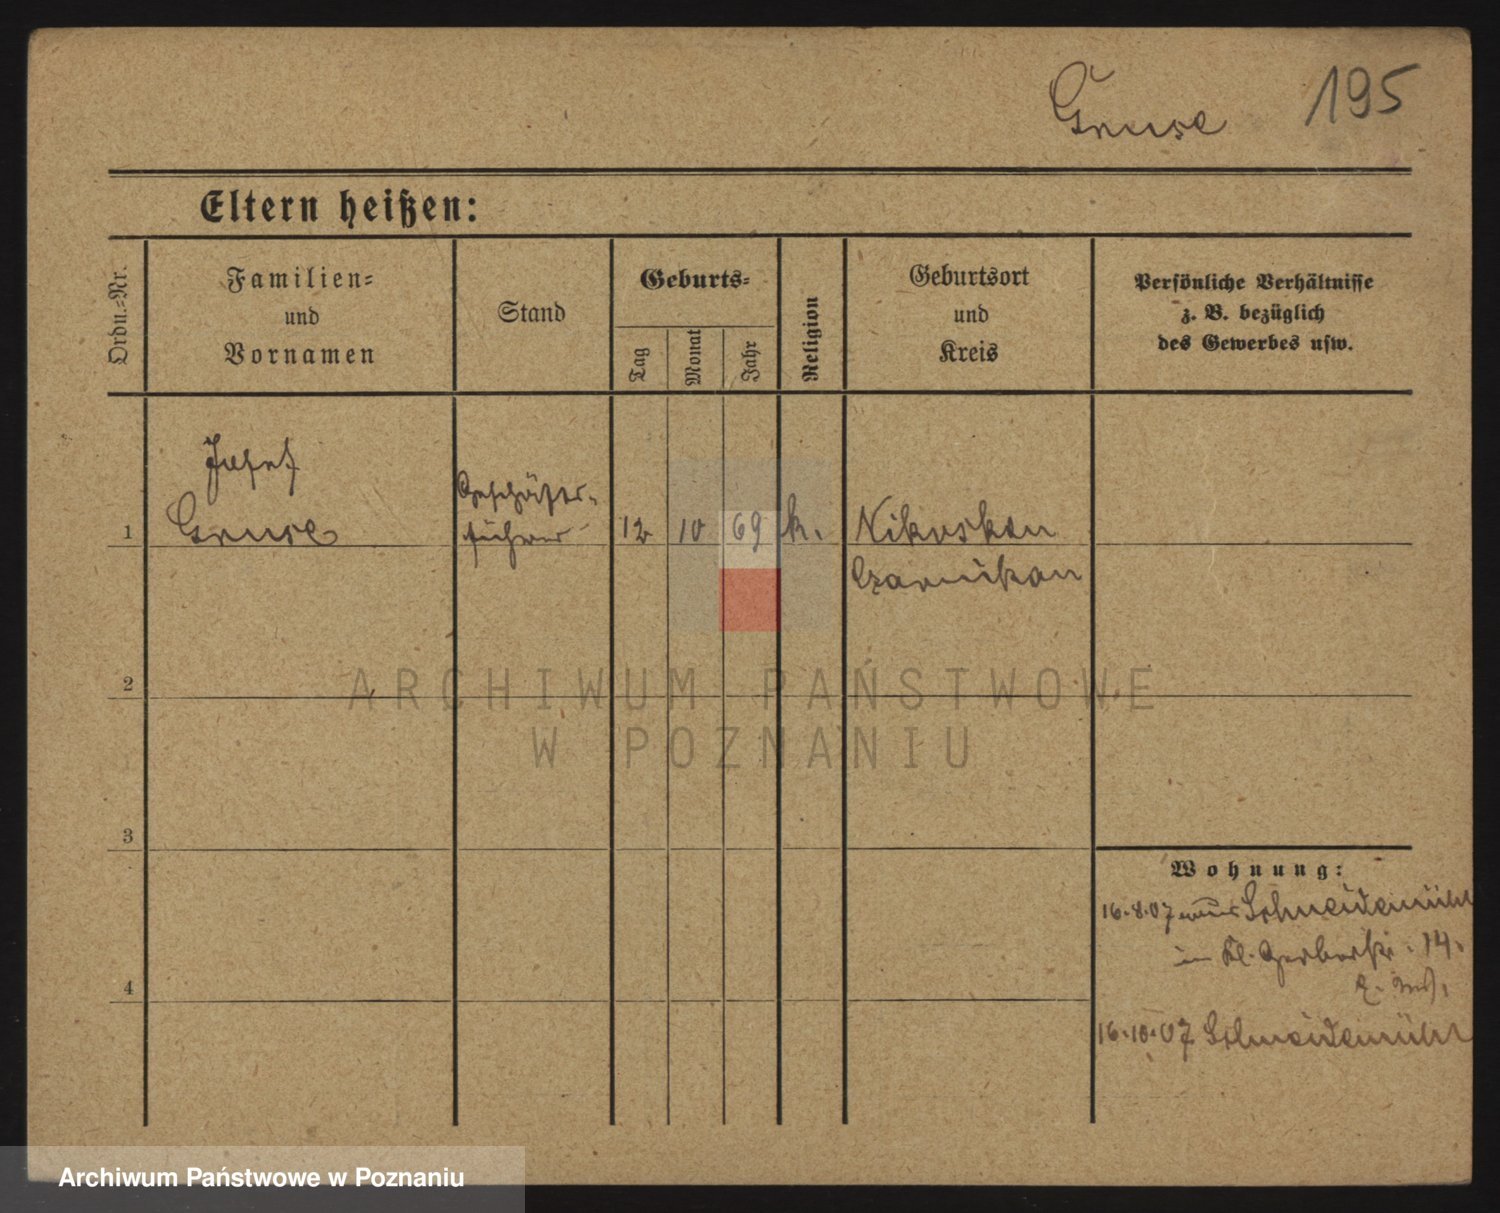 Gruse 195
Eltern heißen:
Ordn.-Nr.
Familien-
und
Vornamen
Stand
Geburts-
Tag
Monat
Jahr
Religion
Geburtsort
und
Kreis
Persönliche Verhältnisse
z. B. bezüglich
des Gewerbes usw.
Josef
Gruse
Geschäfts-
führer
1
12 10 69 k.
Nikosken
Czarnikau
2
ARCHIWUM PAŃSTWOWE
W POZNANIU
3
Wohnung:
16.8.07 Schneidemühl
in Kl. Gerberstr. 14.
4
16.10.07 Schneidemühl
Archiwum Państwowe w Poznaniu